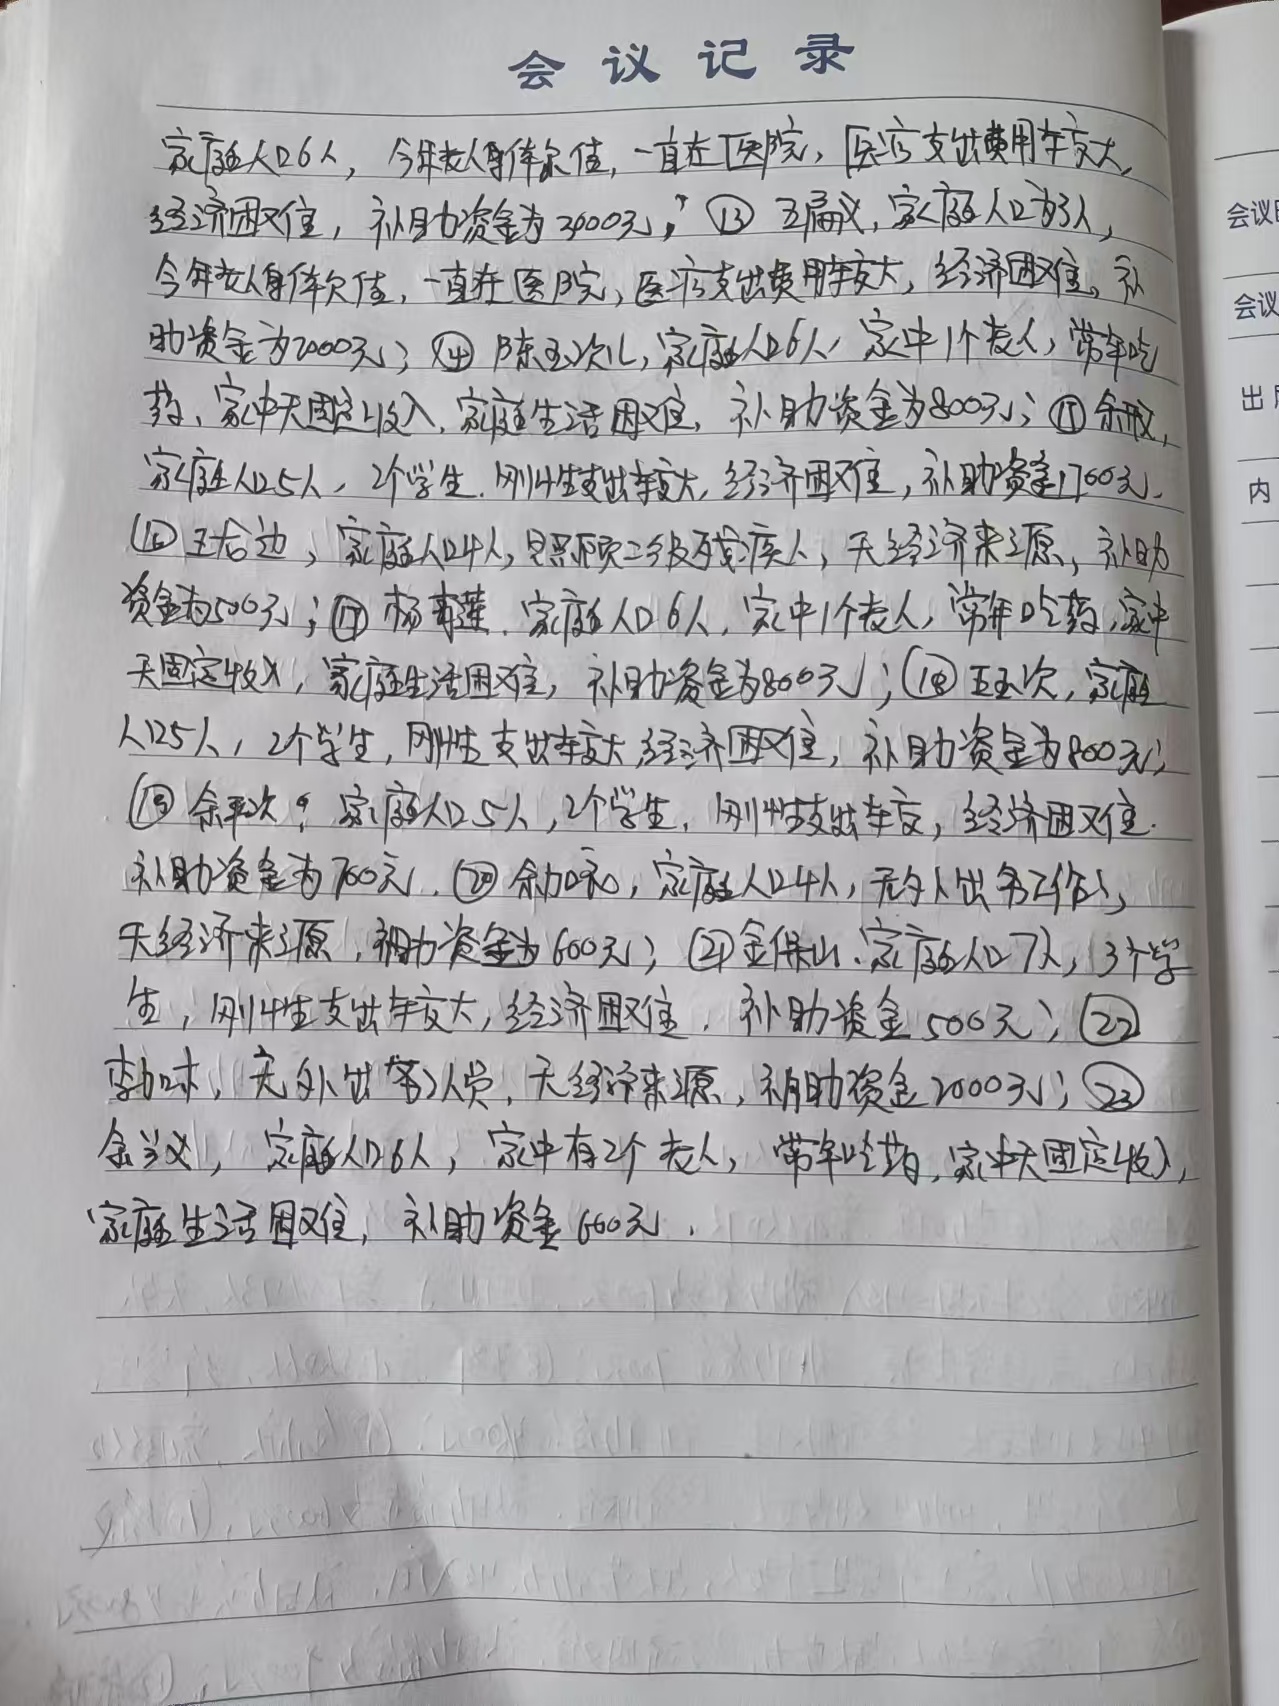 会议记录
家庭人口6人，今年老人身体欠佳，一直在医院，医疗支出费用较大，
经济困难，补助资金为2000元；⑬王扁义，家庭人口为3人，
今年老人身体欠佳，一直在医院，医疗支出费用较大，经济困难，补
助资金为2000元；⑭陈玉次儿，家庭人口6人，家中1个老人，常年吃
药、家中无固定收入，家庭生活困难，补助资金为800元；⑮余
家庭人口5人，2个学生，刚性支出较大，经济困难，补助资金1700元，
⑯王右边，家庭人口4人，照顾二级残疾人，无经济来源，补助
资金为500元；⑰杨莲，家庭人口6人，家中1个老人，常年吃药，家中
无固定收入，家庭生活困难，补助资金为800元；⑱王玉次，家庭
人口5人，2个学生，刚性支出较大，经济困难，补助资金为800元；
⑲余平次，家庭人口5人，2个学生，刚性支出较，经济困难.
补助资金为700元.⑳余加和，家庭人口4人，无外出务工作人，
无经济来源，补助资金为600元；㉑金保山、家庭人口7人，3个学
生，刚性支出较大，经济困难，补助资金500元；㉒
无外出务工人员，无经济来源，补助资金2000元；㉓
金兴义，家庭人口6人，家中有2个老人，常年吃药，家中无固定收入，
家庭生活困难，补助资金600元.
会议
会议
出
内